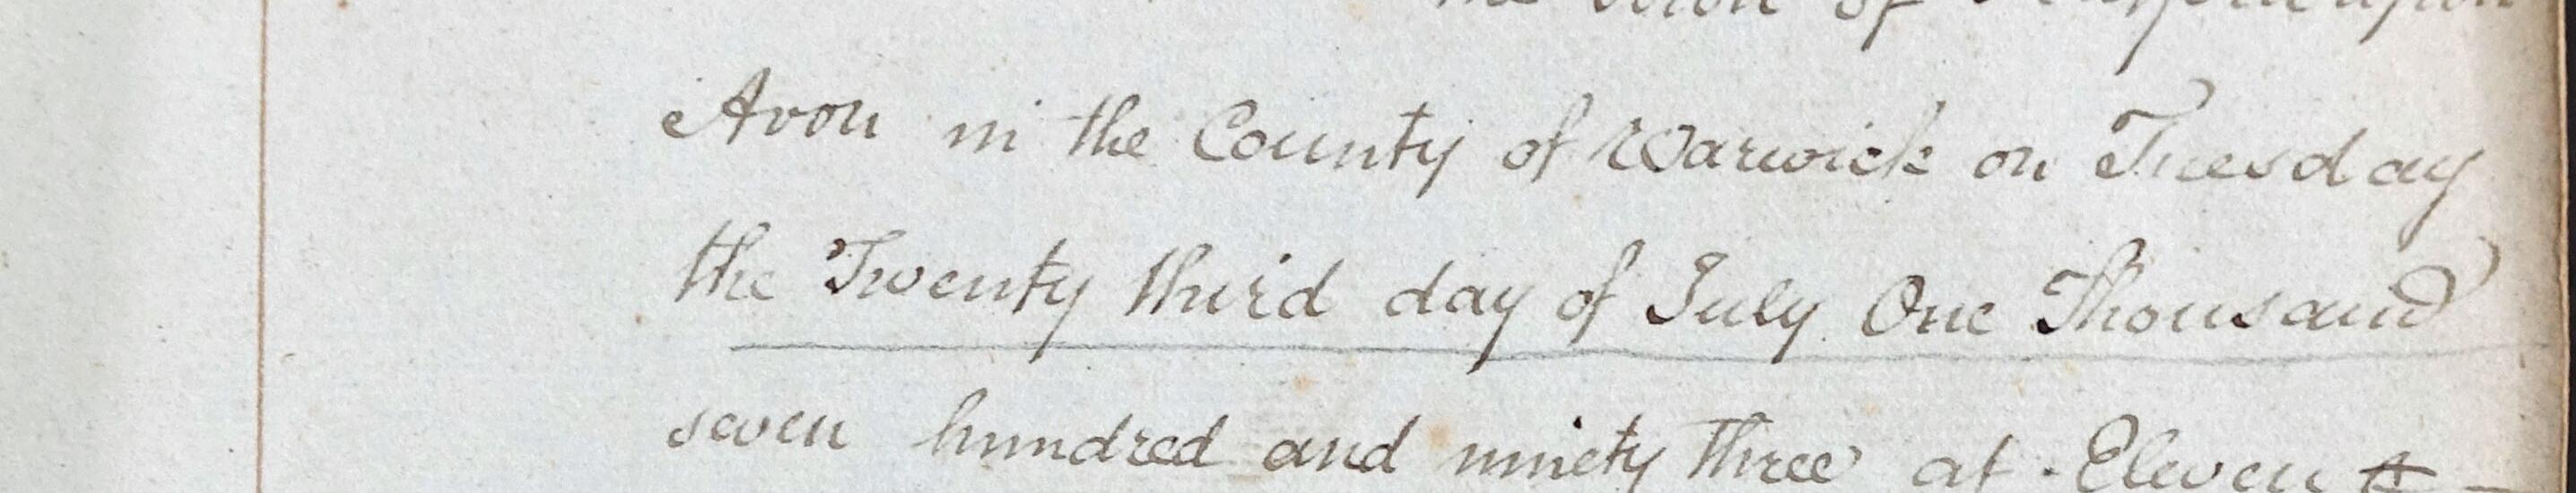 the Town of
Avon in the County of Warwick on Tuesday
the Twenty third day of July One Thousand
seven hundred and ninety three at Eleven